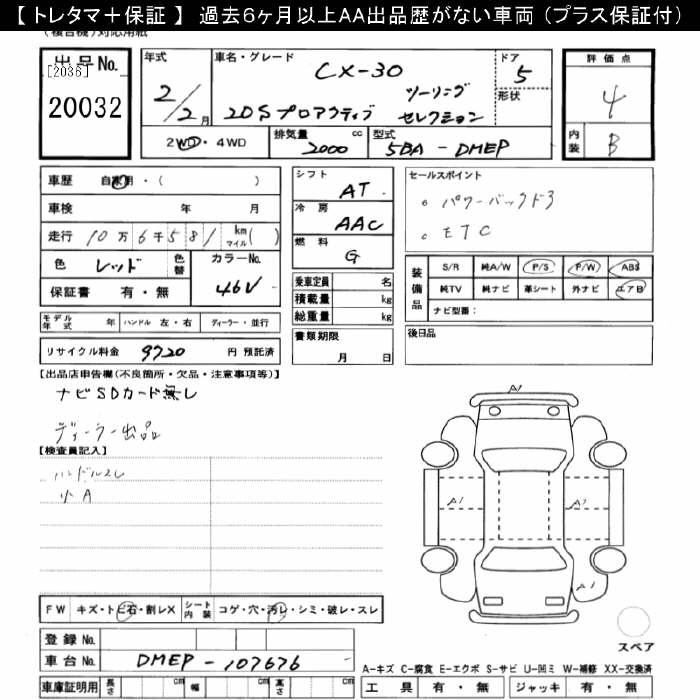 【 トレタマ＋保証 】 過去６ヶ月以上ＡＡ出品歴がない車両（プラス保証付）
(複合機)対応用紙
出品No.
[2036]
20032
年式
2/2月
車名・グレード
CX-30
20S プロアクティブ ツーリング
セレクション
ドア
5
形状
評価点
4
内装
B
2WD・4WD
排気量 cc
2000
型式
5BA - DMEP
車歴 自家用・( )
車検 年 月
走行 10万6千581 km マイル ( )
色 レッド
色替
カラーNo.
46V
保証書 有・無
モデル年式 年 ハンドル 左・右 ディーラー・並行
リサイクル料金 9720 円 預託済
シフト
AT
冷房
AAC
燃料
G
乗車定員 名
積載量 kg
総重量 kg
書類期限
月 日
セールスポイント
○ パワーバックドア
○ ETC
装備品
S/R 純A/W P/S P/W ABS
純TV 純ナビ 革シート 外ナビ エアB
ナビ型番：
後日品
【出品店申告欄(不良箇所・欠品・注意事項等)】
ナビSDカード無し
ディーラー出品
【検査員記入】
ハンドルスレ
小A
A1
A1
A1
FW キズ・トビ石・割レX
シート内装 コゲ・穴・汚レ・シミ・破レ・スレ
登録No.
車台No. DMEP - 107676
車庫証明用 長さ cm 幅 cm 高さ cm
スペア
A-キズ C-腐食 E-エクボ S-サビ U-凹ミ W-補修 XX-交換済
工具 有・無 ジャッキ 有・無